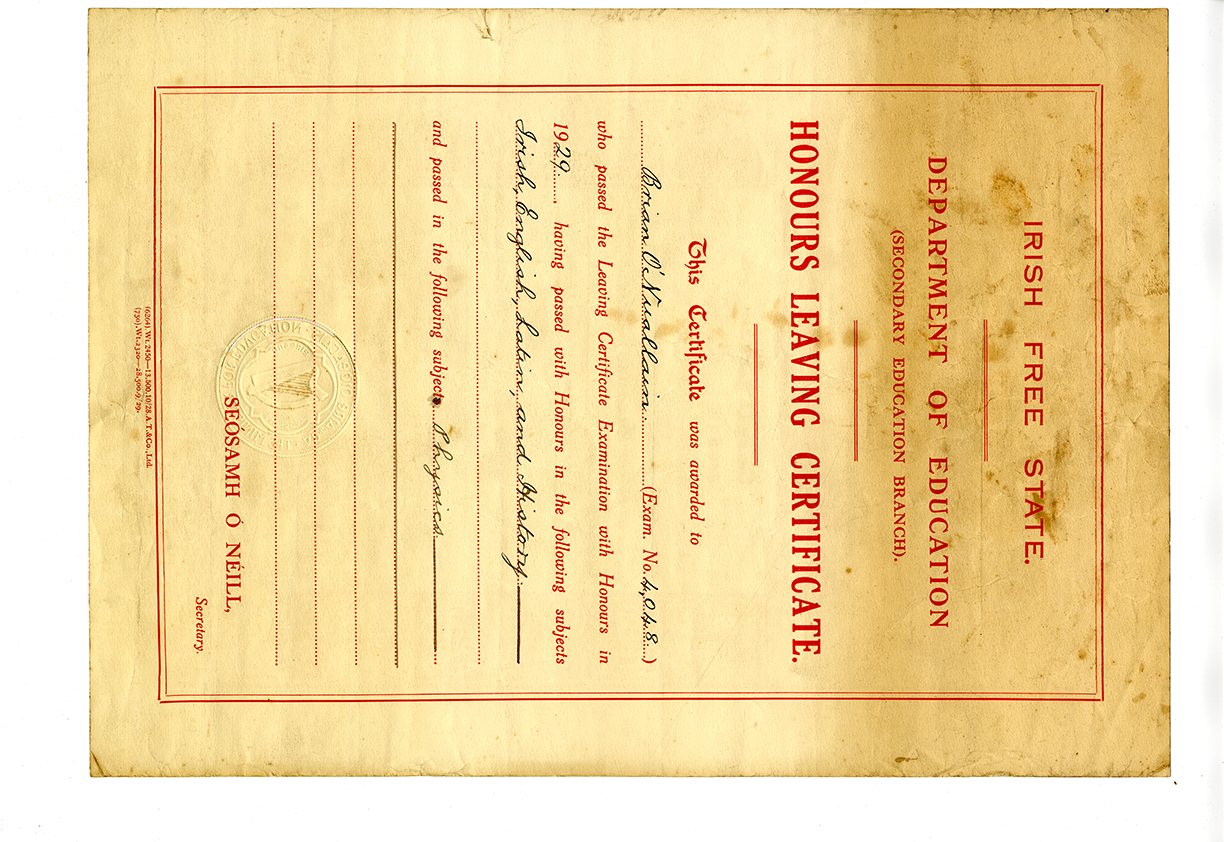 IRISH FREE STATE.
DEPARTMENT OF EDUCATION
(SECONDARY EDUCATION BRANCH).
HONOURS LEAVING CERTIFICATE.
This Certificate was awarded to
Brian O'Nuallain (Exam. No. 4,048)
who passed the Leaving Certificate Examination with Honours in
1929, having passed with Honours in the following subjects
Irish, English, Latin, and History.
and passed in the following subjects Physics
SEÓSAMH Ó NÉILL,
Secretary.
(6264). Wt. 2450—13,500. 10/28. A.T. & Co., Ltd.
(730). Wt. 2320—28,500. 9/29.